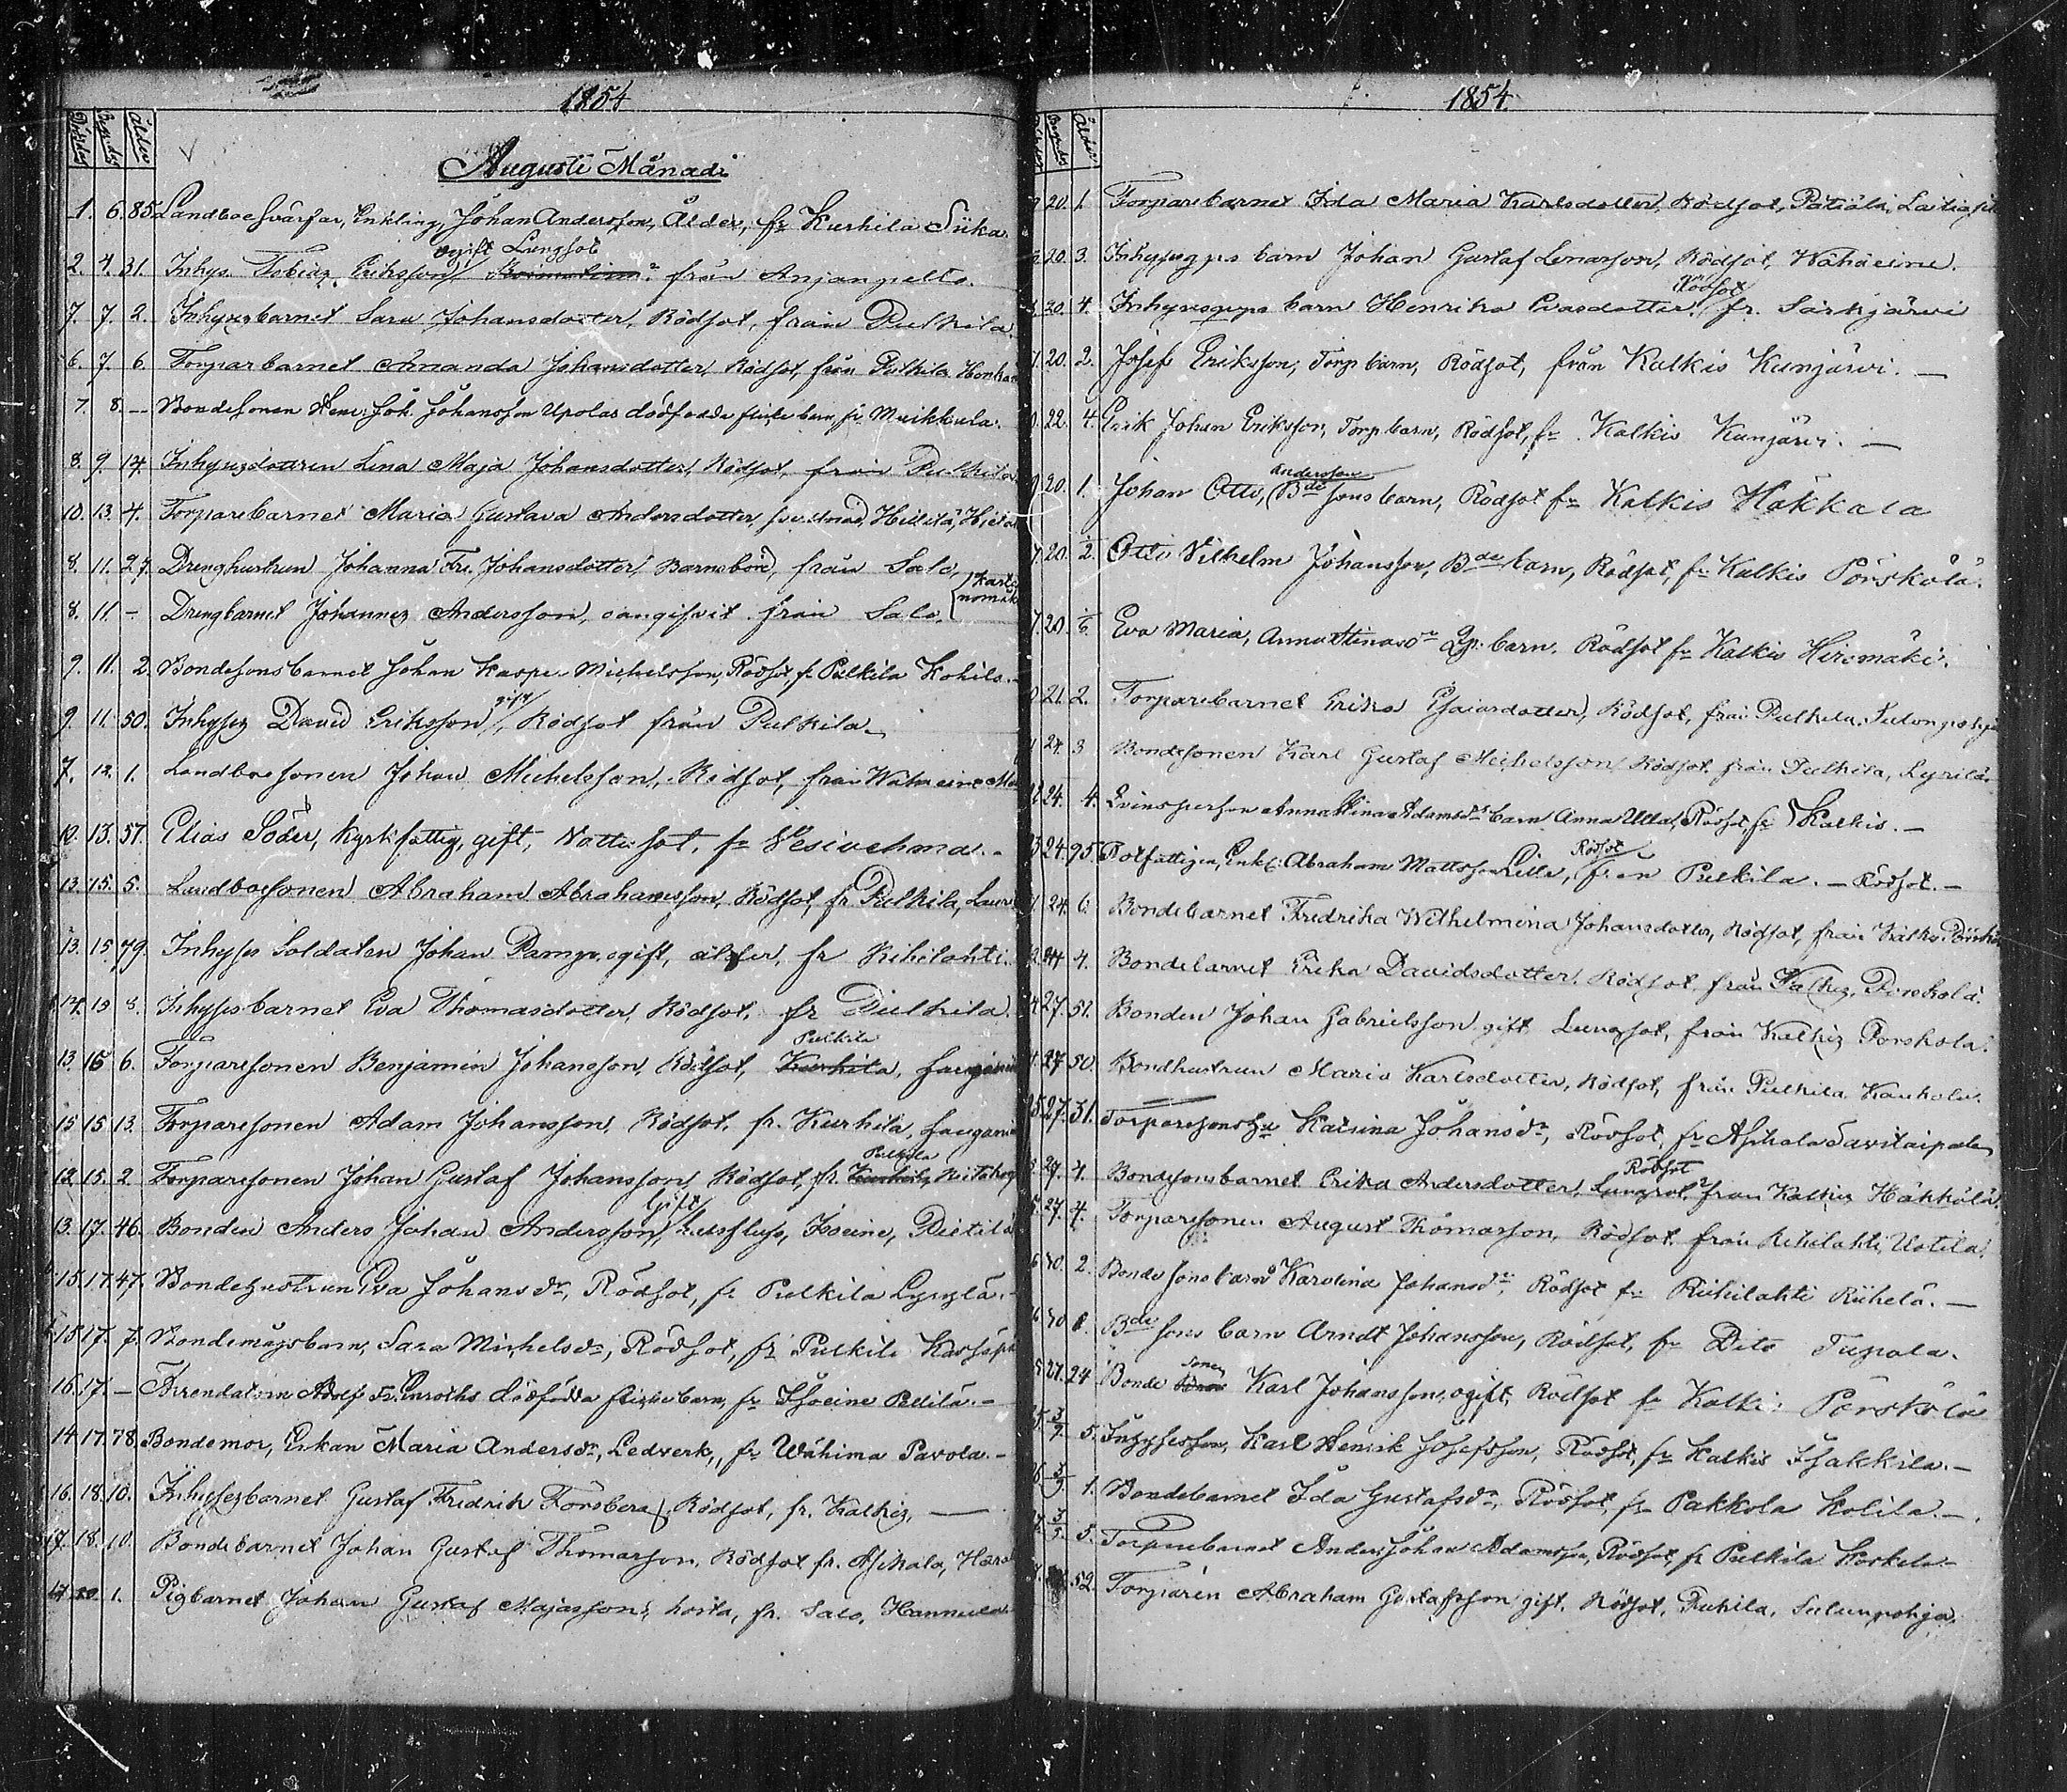 1854
Dödsdag Begrafn. Ålder
Augusti Månad
1. 6. 85 Landboesvärfar, Enkling, Johan Andersson, Ålder, fr Kurhila Siika
ogift Lungsot
2. 4. 31. Inhys. Tobias Eriksson från Anjanpelto.
7. 7. 2. Inhyses barnet Sara Johansdotter, Rödsot, från Pulkila
6. 7. 6 Torparbarnet Amanda Johansdotter, Rödsot, från Pulkila Honka
7. 8. — Bondesonen Henr. Joh. Johansson Upolas dödfödda flickebarn, fr Muikkula.
8. 9. 14 Inhysesdottren Lena Maja Johansdotter, Rödsot, från Pulkila
10. 13. 4. Torparebarnet Maria Gustava Andersdotter, Hillilä,
8. 11. 27. Drenghustrun Johanna Fre. Johansdotter, Barnsbörd, från Salo,
8. 11. – Drengbarnet Johannes Andersson, oangifvit från Salo,
9. 11. 2. Bondesonsbarnet Johan Kasper Michelsson, Rödsot, fr Pulkila Kohila.
gift
9. 11. 50. Inhyses David Eriksson, Rödsot från Pulkila.
7. 12. 1. Landboesonen Johan Michelsson, Rödsot, från Wähä eine
10. 13. 57. Elias Söder, Kyrkfattig, gift, Vattusot, fr Vesivehma.
13. 15. 5. Landboesonen Abraham Abrahamsson, Rödsot, fr Pulkila, Lauri
13. 15. 79. Inhyses Soldaten Johan Pamp, ogift, ålder, fr Rihilahti.
14. 15 8. Inhyses barnet Eva Thomasdotter, Rödsot, fr Pulkila.
Pulkila
13. 15 6. Torparesonen Benjamin Johansson, Rödsot, Kurhila,
15 15 13. Torparesonen Adam Johansson, Rödsot, fr. Kurhila,
Pulkila
12. 15. 2. Torparesonen Johan Gustaf Johansson, Rödsot, fr. Kurhila,
Gift
13. 17. 46. Bonden Anders Johan Andersson, Isoeine, Pietilä
15. 17. 47. Bondehustrun Eva Johans dr, Rödsot, fr Pulkila Lyyylä.
15 17. 7. Bondemågsbarn, Sara Michelsdr, Rödsot, fr Pulkila
16. 17. — Arrendatorn Adolf Fr. Enroths dödfödda flickebarn, fr Isoeine Pellilä. –
14. 17. 78. Bondemor, Enkan Maria Andersdr, Ledverk, fr Wähima Pavola. –
16. 18. 10. Inhysesbarnet Gustaf Fredrik Forsberg, Rödsot, fr. Kalkis, —
17. 18. 10. Bondebarnet Johan Gustaf Thomasson, Rödsot fr. Asikala,
17 20. 1. Pigbarnet Johan Gustaf Majasson, hosta, fr. Salo, Hannula
1854.
Ålder
20. 1. Torparebarnet Ida Maria Karlsdotter, Rödsot, Pätiälä,
20. 3. Inhysesgps barn Johan Gustaf Lenasson, Rödsot, Wähäeine.
Rödsot
20. 4. Inhysesgps barn Henrika Evasdotter, fr. Särkjärvi
20. 2. Josef Eriksson, Torp barn, Rödsot, från Kalkis Kunjärvi. —
22. 4. Erik Johan Eriksson, Torp barn, Rödsot, fr Kalkis Kunjärvi. —
Andersson
20. 1. Johan Otto, Bde sons barn, Rödsot fr Kalkis Häkkälä
20. 2. Otto Vilhelm Johansson, Bde barn, Rödsot, fr Kalkis Pörskölä.
20. Eva Maria, Anna Stinas dr barn. Rödsot fr Kalkis Hiromäki.
21. 2. Torparebarnet Erika Esaiasdotter, Rödsot, från Pulkila,
24. 3 Bondesonen Karl Gustaf Michelsson Rödsot från Pulkila, Lyrilä.
24. 4. Qvinsperson Anna Stina Adamsdr barn Anna Ulla, Rödsot, fr Kalkis. –
Rödsot
24. 95. Rotfattigen, Enkl. Abraham Mattsson Lille, från Pulkila. – Rödsot. –
24. 6. Bondebarnet Fredrika Wilhelmina Johansdotter, Rödsot, från Kalkis
24 4. Bondebarnet Erika Davidsdotter, Rödsot från Kalkis, Pörskölä.
27. 51. Bonden Johan Gabrielsson gift Lungsot, från Kalkis Porskola.
27 50. Bondhustrun Maria Karlsdotter, Rödsot, från Pulkila
27. 31. Torparesons hu Katrina Johansdr, Rödsot, fr Asikala Savitaipale
Rödsot
27. 4. Bondesonsbarnet Erika Andersdotter, Lungsot, från Kalkis Häkkälä.
27. 4. Torparesonen August Thomasson, Rödsot från Rihilahti, Uotila.
30. 2. Bonde sons barn Karolina Johansdr, Rödsot fr Rihilahti Riihelä. —
30 8. Bde sons barn Arndt Johansson, Rödsot, fr Dito Tupala.
sonen
27. 24 Bonde Karl Johansson, ogift, Rödsot fr Kalkis Pörskölä
3/9 5. Inhyseson, Karl Henrik Josefsson, Rödsot, fr Kalkis Isakkila. –
3/9 1. Bondebarnet Ida Gustafsdr, Rödsot, fr Pakkola Kolila. –
3/9. 5. Torparebarnet Anders Johan Adamsson, Rödsot, fr Pulkila Koskela –
52. Torparen Abraham Gustafsson gift, Rödsot, Pulkila, Sulunpohja.